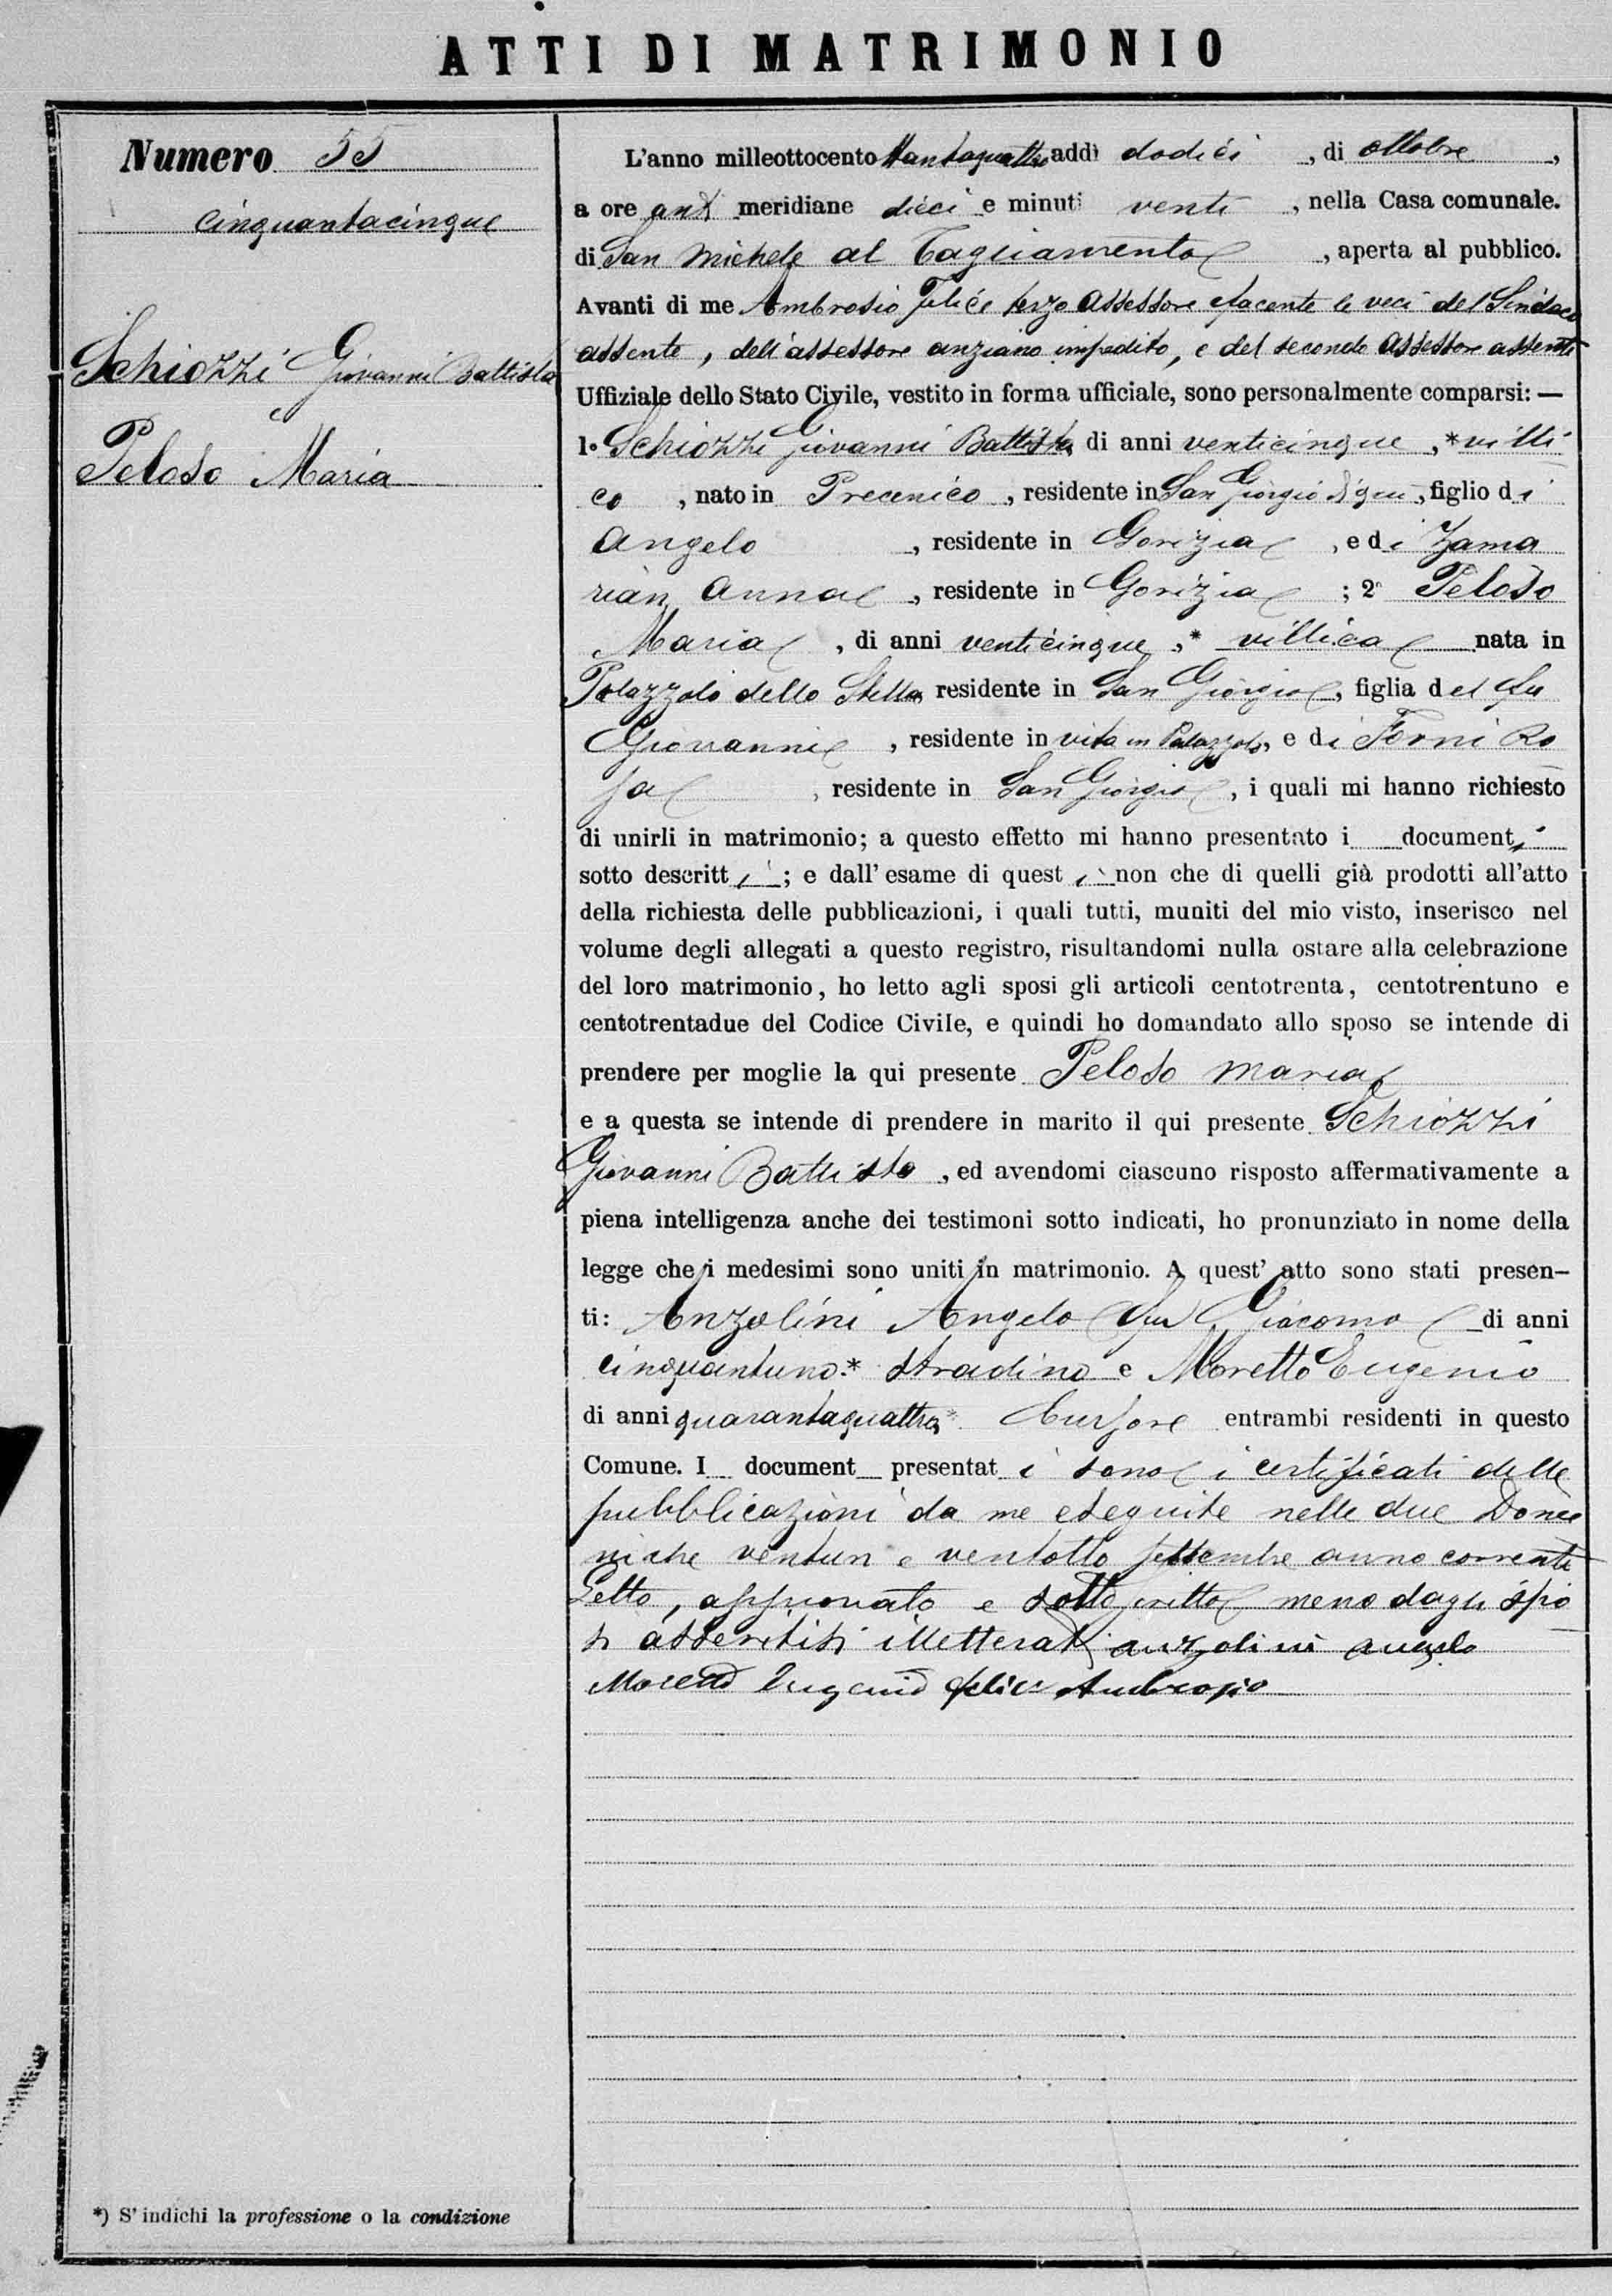 ATTI DI MATRIMONIO
Numero 55
cinquantacinque
Schiozzi Giovanni Battista
Peloso Maria
L'anno milleottocento ttantaquattro addì dodici, di ottobre,
a ore ant meridiane dieci e minuti venti, nella Casa comunale.
di San Michele al Tagliamento, aperta al pubblico.
Avanti di me Ambrosio Felice terzo Assessore facente le veci del Sindaco
assente, dell'assessore anziano impedito, e del secondo Assessore assente
Uffiziale dello Stato Civile, vestito in forma ufficiale, sono personalmente comparsi: —
1º Schiozzi Giovanni Battista di anni venticinque, *villi
co, nato in Precenico, residente in San Giorgio di qui, figlio di
Angelo, residente in Gorizia, e di Zama
rian Anna, residente in Gorizia; 2º Peloso
Maria, di anni venticinque, * villica nata in
Palazzolo dello Stella residente in San Giorgio, figlia del fu
Giovanni, residente in vita in Palazzolo, e di Forni Ro
sa, residente in San Giorgio, i quali mi hanno richiesto
di unirli in matrimonio; a questo effetto mi hanno presentato i documenti
sotto descritti; e dall'esame di questi non che di quelli già prodotti all'atto
della richiesta delle pubblicazioni, i quali tutti, muniti del mio visto, inserisco nel
volume degli allegati a questo registro, risultandomi nulla ostare alla celebrazione
del loro matrimonio, ho letto agli sposi gli articoli centotrenta, centotrentuno e
centotrentadue del Codice Civile, e quindi ho domandato allo sposo se intende di
prendere per moglie la qui presente Peloso Maria
e a questa se intende di prendere in marito il qui presente Schiozzi
Giovanni Battista, ed avendomi ciascuno risposto affermativamente a
piena intelligenza anche dei testimoni sotto indicati, ho pronunziato in nome della
legge che i medesimi sono uniti in matrimonio. A quest'atto sono stati presen-
ti: Anzolini Angelo fu Giacomo di anni
cinquantuno * stradino e Moretto Eugenio
di anni quarantaquattro * Cursore entrambi residenti in questo
Comune. I document presentati sono i certificati delle
pubblicazioni da me eseguite nelle due Dome
niche ventun e ventotto settembre anno corrente
Letto, approvato e sottoscritto meno dagli spo
si assertisi illetterati Anzolini Angelo
Moretto Eugenio Felice Ambrosio
*) S'indichi la professione o la condizione